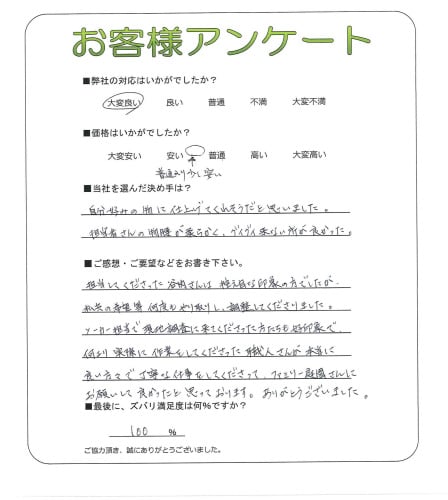 お客様アンケート
■弊社の対応はいかがでしたか?
大変良い 良い 普通 不満 大変不満
■価格はいかがでしたか?
大変安い 安い 普通 高い 大変高い
普通より少し安い
■当社を選んだ決め手は?
自分好みの物に仕上げてくれそうだと思いました。
担当者さんの物腰が柔らかく、グイグイ来ない所が良かった。
■ご感想・ご要望などをお書き下さい。
担当してくださった さんは 控え目な印象の方でしたが、
私共の希望等 何度もやり取りし、調整してくださりました。
メーカー担当で現地調査に来てくださった方たちも好印象で、
何より実際に作業をしてくださった職人さんが本当に
良い方々で丁寧な仕事をしてくださって、フェリー庭園さんに
お願いして良かったと思っております。ありがとうございました。
■最後に、ズバリ満足度は何%ですか?
100 %
ご協力頂き、誠にありがとうございました。